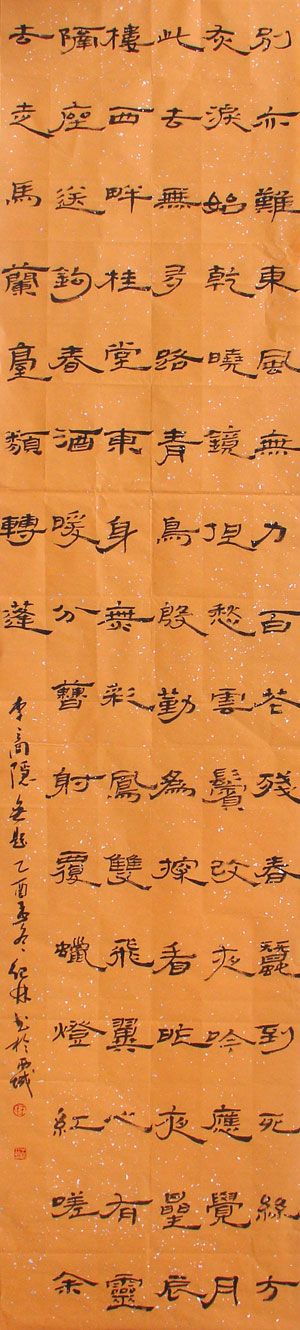 別亦難東風無力百花殘春蠶到死絲方
灰淚始乾曉鏡但愁雲鬢改夜吟應覺月
此去無多路青鳥殷勤為探看昨夜曐辰
樓西畔桂堂東身無彩鳳雙飛翼心有靈
隔座送鉤春酒暖分曹射覆蠟燈紅嗟余
去走馬蘭臺類轉蓬
李商隱無題乙酉孟冬紀林書於西域